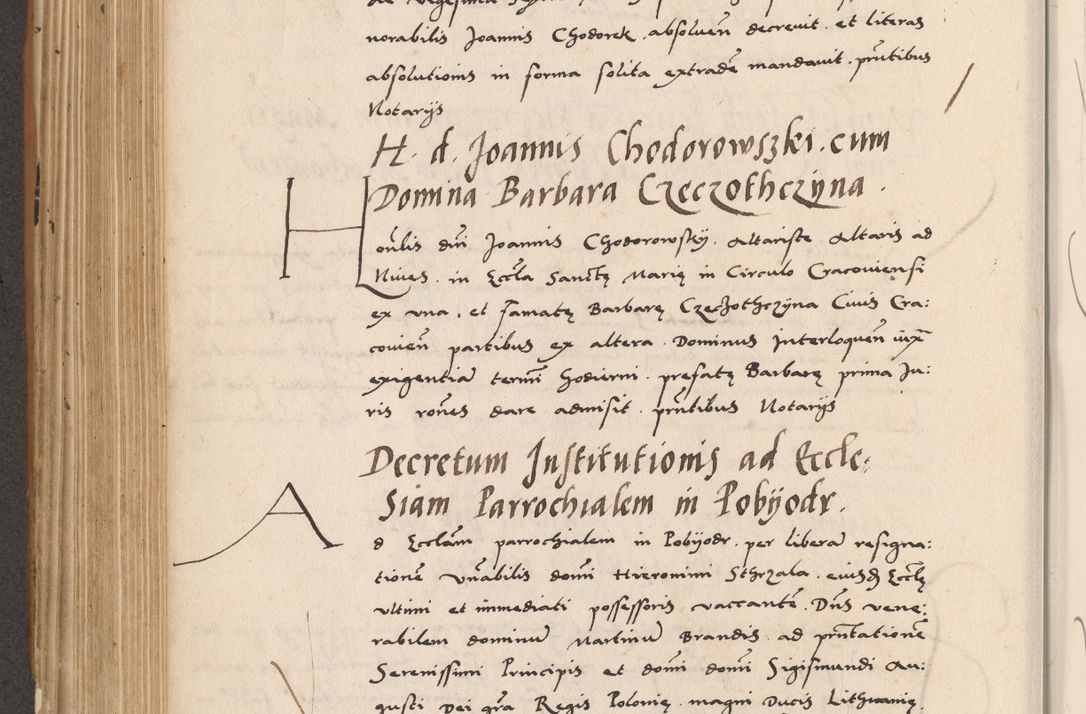 norabilis Joannis Chodorek. absolueñ decreuit. et literas
absolutionis in forma solita extradẽ mandauit. pñtibus
Notarijs
H. d. Joannis Chodorowszki. cum
Domina Barbara Czeczothczyna.
Hoñblis dñi Joannis Chodorowsky. Altariste Altaris ad
Niues. in Eccła Sanctę Marię in Circulo Cracouiensi
ex vna. et famatę Barbarę Czeczothczyna Ciuis Cra:
couieñ partibus ex altera. Dominus Interloqueñ iux̃
exigentiã termĩ hodierni. prefatę Barbarę prima Ju:
ris roñes dare admisit. pñtibus Notarijs
Decretum Institutionis ad Eccle:
Siam Parrochialem in Pobyodr.
Ad Ecclãm parrochialem in Pobyodr. per liberã resigna:
tionẽ Vñabilis domĩ Hieronimi Sthrzala. eiusdẽ Ecclę
vltimi et immediati possessoris vaccantẽ. Dñs vene:
rabilem dominũ Martinũ Brandis. ad pñtationẽ
Serenissimi Principis et domĩ domĩ Sigismundi Au:
gusti Dei gra Regis Polonię. magni Ducis Lithuanię